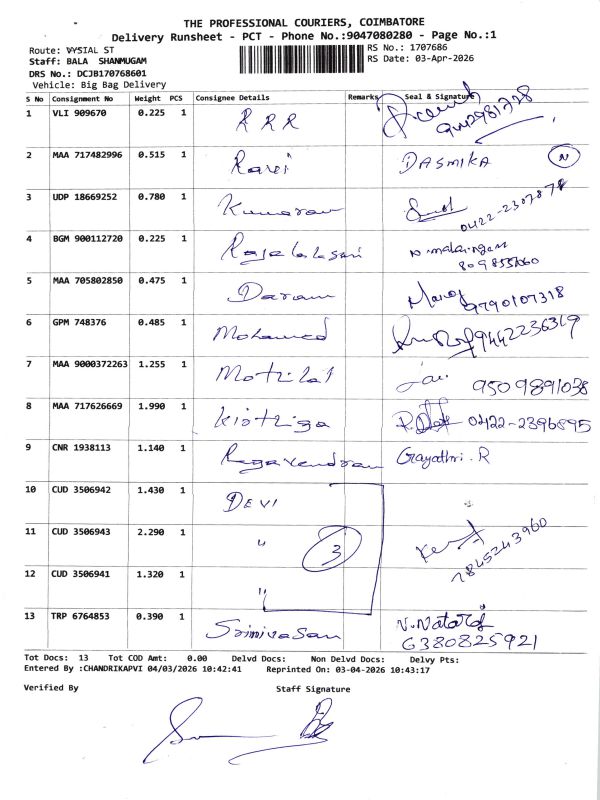 THE PROFESSIONAL COURIERS, COIMBATORE
Delivery Runsheet - PCT - Phone No.:9047080280 - Page No.:1
Route: VYSIAL ST
RS No.: 1707686
Staff: BALA SHANMUGAM
RS Date: 03-Apr-2026
DRS No.: DCJB170768601
Vehicle: Big Bag Delivery
S No Consignment No Weight PCS Consignee Details Remarks Seal & Signature
1 VLI 909670 0.225 1 RRR 9442981728
2 MAA 717482996 0.515 1 Ravi DASMIKA N
3 UDP 18669252 0.780 1 Kumaran 0422-2307878
4 BGM 900112720 0.225 1
5 MAA 705802850 0.475 1 Manoj 9790107318
6 GPM 748376 0.485 1 Mohamed 9442236319
7 MAA 9000372263 1.255 1 Motilal 9509891038
8 MAA 717626669 1.990 1 Kirthiga 0422-2396895
9 CNR 1938113 1.140 1 Ragavendran Gayathri.R
10 CUD 3506942 1.430 1 DEVI
11 CUD 3506943 2.290 1 " 3 7845243960
12 CUD 3506941 1.320 1 "
13 TRP 6764853 0.390 1 Srinivasan V.Nataraj
6380825921
Tot Docs: 13 Tot COD Amt: 0.00 Delvd Docs: Non Delvd Docs: Delvy Pts:
Entered By :CHANDRIKAPVI 04/03/2026 10:42:41 Reprinted On: 03-04-2026 10:43:17
Verified By Staff Signature